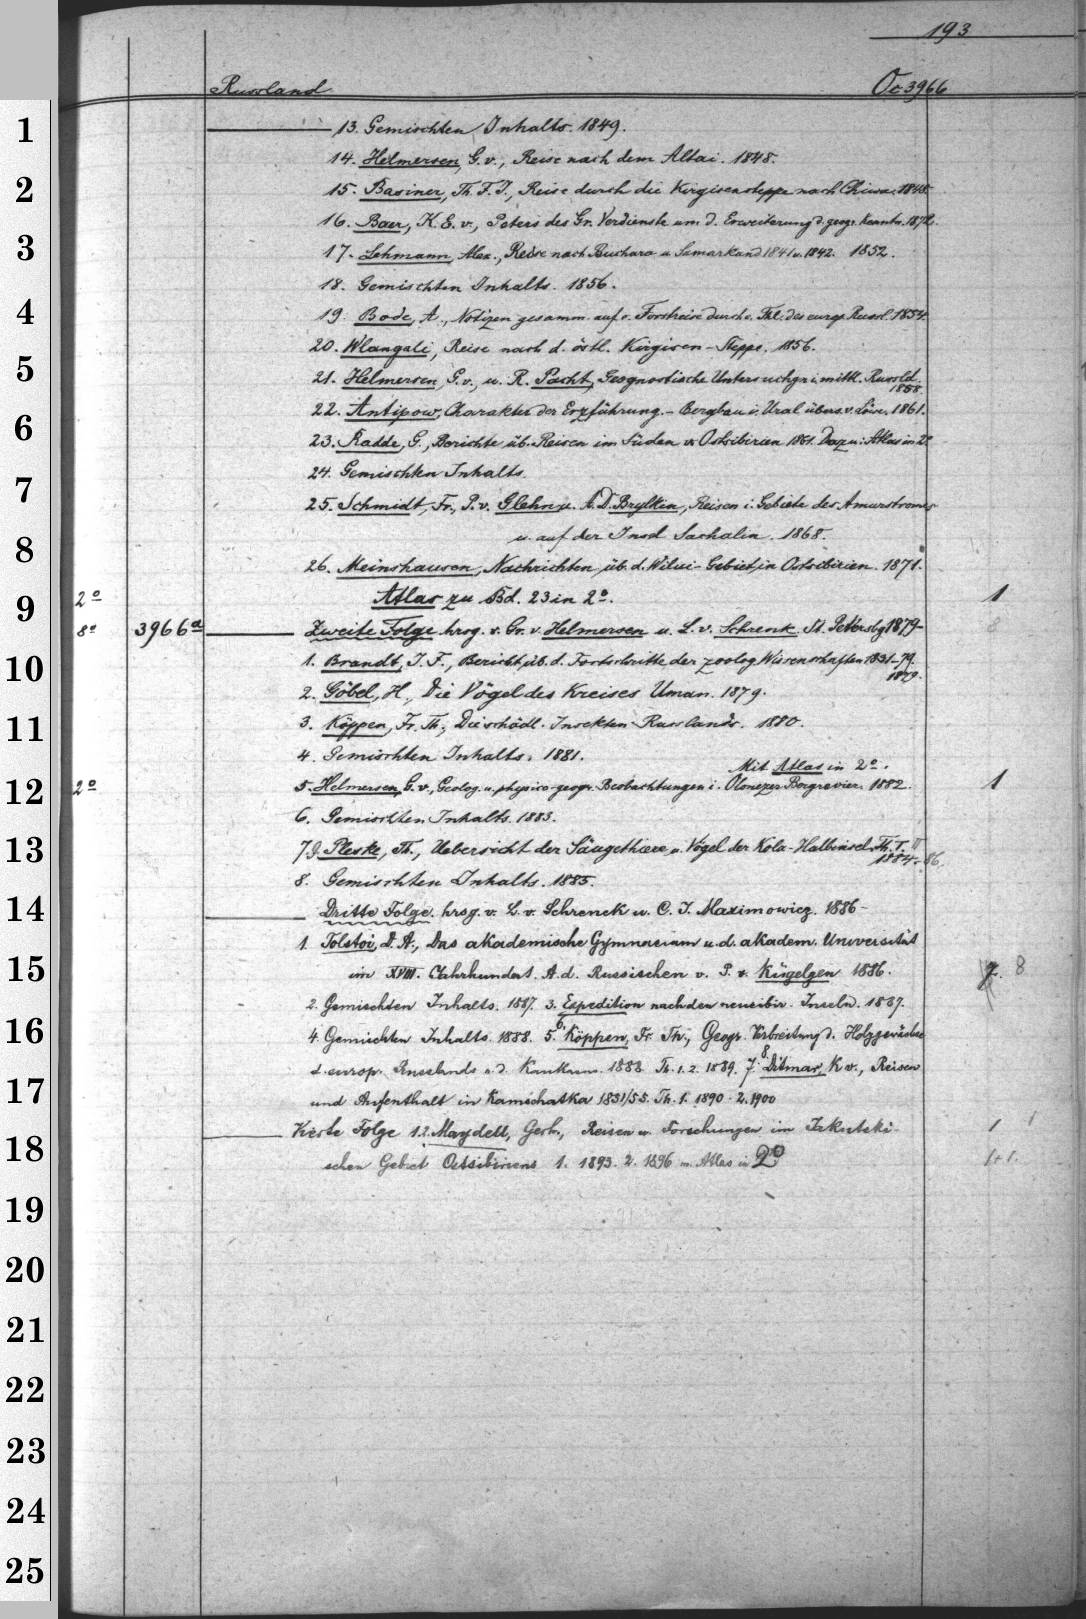 193
Russland Oc 3966
1
2
3
4
5
6
7
8
9
10
11
12
13
14
15
16
17
18
19
20
21
22
23
24
25
13. Gemischten Inhalts. 1849.
14. Helmersen, G. v., Reise nach dem Altai. 1848.
15. Basiner, Th. F. J., Reise durch die Kirgisensteppe nach Chiwa. 1848.
16. Baer, K. E. v., Peters des Gr. Verdienste um d. Erweiterung d. geogr. Kenntn. 1872.
17. Lehmann, Alex., Reise nach Buchara u. Samarkand 1841 u. 1842. 1852.
18. Gemischten Inhalts. 1856.
19. Bode, A., Notizen gesamm. auf e. Forstreise durch e. Thl. des europ. Russl. 1854.
20. Wlangali, Reise nach d. östl. Kirgisen-Steppe. 1856.
21. Helmersen, G. v., u. R. Pacht, Geognostische Untersuchgn i. mittl. Russld.
1858.
22. Antipow, Charakter der Erzführung. - Bergbau i. Ural übers. v. Löwe, 1861.
23. Radde, G., Berichte üb. Reisen im Süden v. Ostsibirien 1861. Dazu: Atlas in 2°
24. Gemischten Inhalts.
25. Schmidt, Fr., P. v. Glehn u. A. D. Brylkin, Reisen i. Gebiete des Amurstromes
u. auf der Insel Sachalin. 1868.
26. Meinshausen, Nachrichten üb. d. Wilui-Gebiet in Ostsibirien. 1871.
2° Atlas zu Bd. 23 in 2°. 1
8° 3966a Zweite Folge hrsg. v. Gr. v. Helmersen u. L. v. Schrenk. St. Petersbg 1879- 8
1. Brandt, J. F., Bericht üb. d. Fortschritte der zoolog. Wissenschaften 1831-79.
1879.
2. Göbel, H., Die Vögel des Kreises Uman. 1879.
3. Köppen, Fr. Th., Die schädl. Insekten Russlands. 1880.
4. Gemischten Inhalts. 1881.
Mit Atlas in 2°.
2° 5. Helmersen, G. v., Geolog. u. physico-geogr. Beobachtungen i. Olonezer Bergrevier. 1882. 1
6. Gemischten Inhalts. 1883.
7.9. Pleske, Th., Uebersicht der Säugethiere u. Vögel der Kola-Halbinsel. Th. I. II
1884-86.
8. Gemischten Inhalts. 1885.
Dritte Folge. hrsg. v. L. v. Schrenck u. C. J. Maximowicz. 1886-
1. Tolstoi, D. A., Das akademische Gymnasium u. d. akadem. Universität
im XVIII. Jahrhundert. A. d. Russischen v. P. v. Kügelgen 1886. 7. 8
2. Gemischten Inhalts. 1887. 3. Expedition nach den neusibir. Inseln. 1887.
4. Gemischten Inhalts. 1888. 5. 6. Köppen, Fr. Th., Geogr. Verbreitung d. Holzgewächse
d. europ. Russlands u. d. Kaukasus. 1888. Th. 1. 2. 1889. 7. 8. Ditmar, K v., Reisen
und Aufenthalt in Kamschatka 1851/55. Th. 1. 1890. 2. 1900
Vierte Folge 1.2. Maydell, Gerh., Reisen u. Forschungen im Jakutski- 1 1
schen Gebiet Ostsibiriens 1. 1893. 2. 1896 m. Atlas in 2° 1+1.